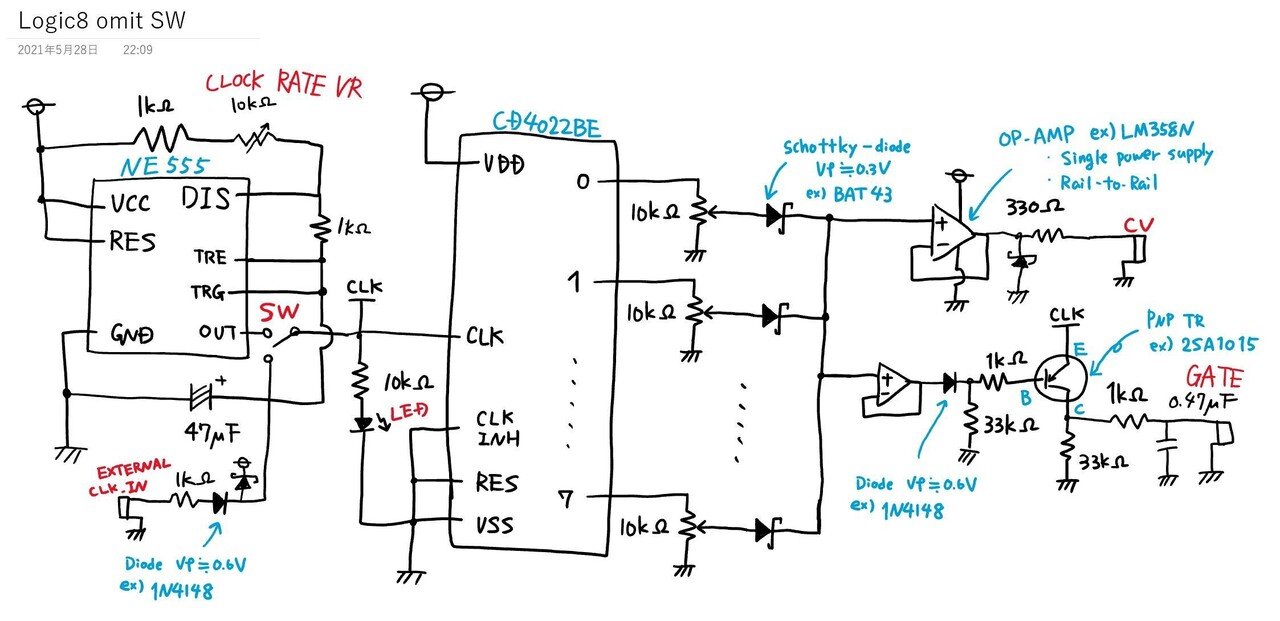 Logic8 omit SW
2021年5月28日 22:09
CLOCK RATE VR
1kΩ
10kΩ
NE555
VCC
DIS
RES
1kΩ
TRE
TRG
SW
CLK
GND
OUT
+
47μF
10kΩ
LED
EXTERNAL
CLK.IN
1kΩ
Diode Vf≒0.6V
ex) 1N4148
CD4022BE
VDD
0
1
CLK
CLK
INH
RES
7
VSS
10kΩ
10kΩ
10kΩ
Schottky-diode
Vf≒0.3V
ex) BAT43
OP-AMP ex) LM358N
・Single power supply
・Rail-to-Rail
+
-
330Ω
CV
+
-
Diode Vf≒0.6V
ex) 1N4148
33kΩ
1kΩ
CLK
PNP TR
ex) 2SA1015
E
B
C
1kΩ
GATE
0.47μF
33kΩ